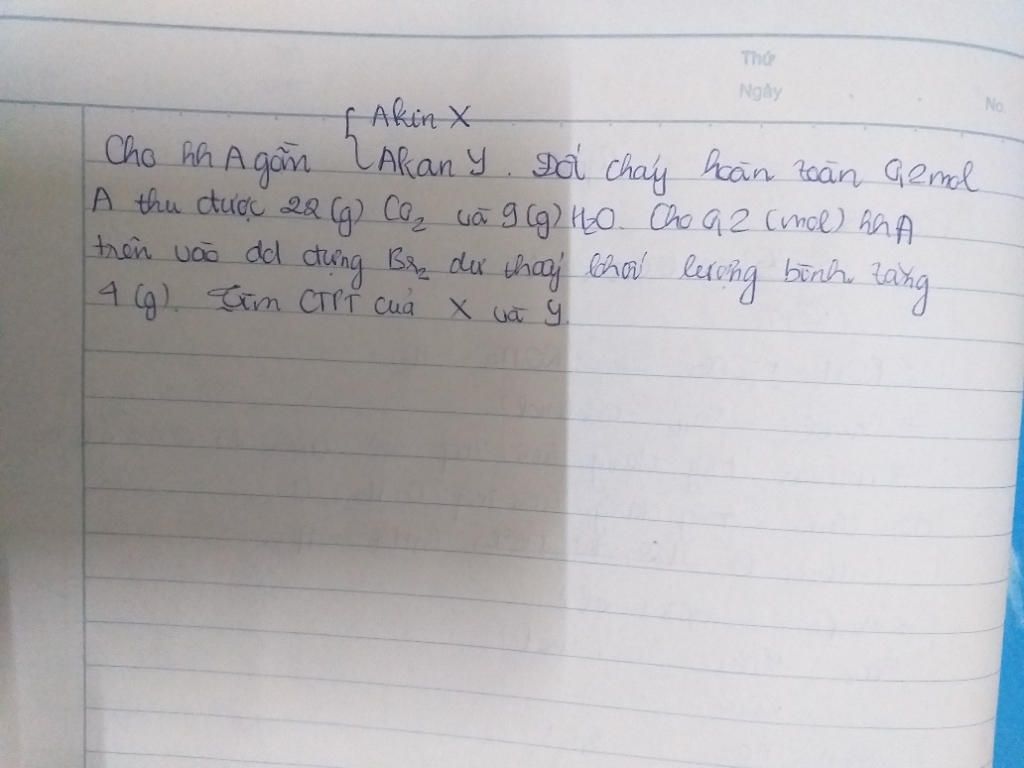 Thứ
Ngày
No.
{ Akin X
Cho hh A gồm { Akan Y. Đốt cháy hoàn toàn 0,2 mol
A thu được 22 (g) CO2 và 9 (g) H2O. Cho 0,2 (mol) hh A
trên vào dd đựng Br2 dư thấy khối lượng bình tăng
4 (g). Tìm CTPT của X và Y.